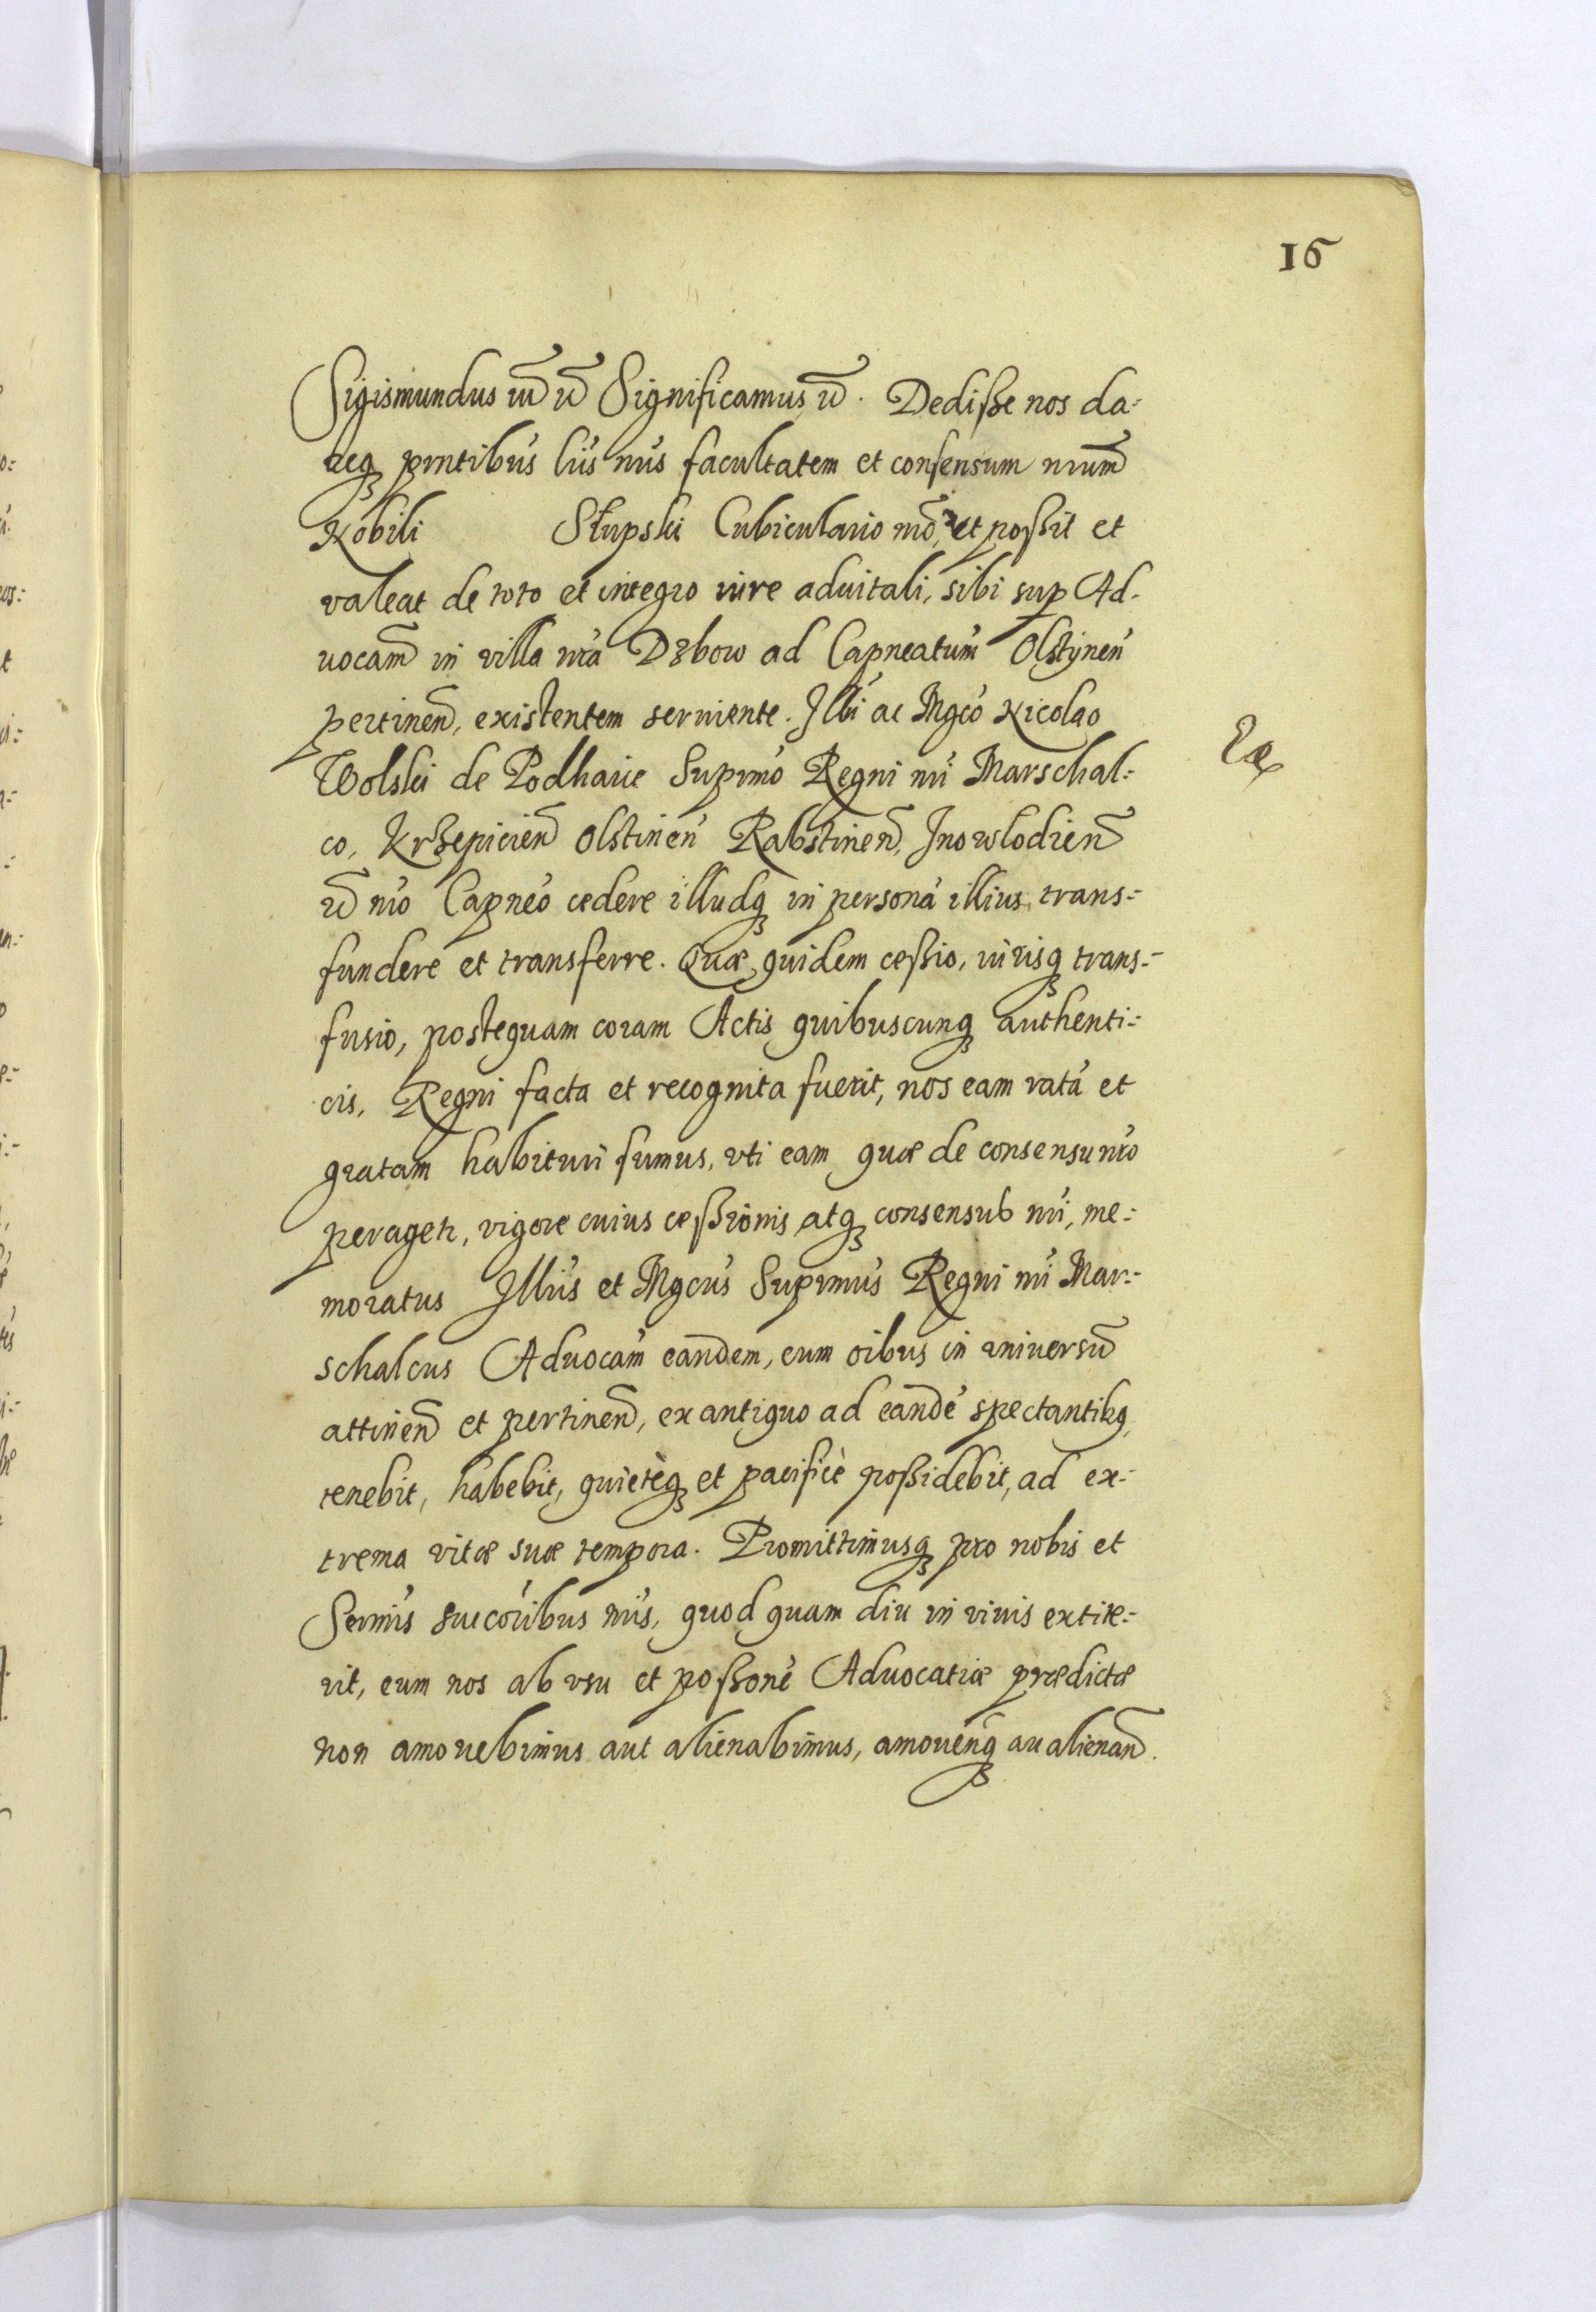 16
Sigismundus Significamus. Dedisse nos da-
req́ pntibus lris nris facultatem et consensum nrum
Nobili Słupski Cubiculario nro, ut possit et
valeat de toto et integro iure advitali, sibi sup Ad-
uocam in villa nra Dzbow ad Capneatum Olstynen
pertinen, existentem serviente. Illri ac Mgco Nicolao
Wolski de Podhaice Supmo Regni nri Marschal-
co, Krzepicien Olstinen Rabstinen, Inowlodien
nro Capneo cedere illudq́ in persona illius trans-
fundere et transferre. Quæ quidem cessio, iurisq́ trans-
fusio, postequam coram Actis quibuscunq́ authenti-
cis, Regni facta et recognita fuerit, nos eam ratá et
gratam habituri sumus, vti eam quæ de consensu nro
peragetr, vigore cuius cessionis atq́ consensus nri, me-
moratus Illris et Mgcus Supmus Regni nri Mar-
schalcus Aduocam eandem, cum oibus in vniversum
attinen et pertinen, ex antiquo ad eande spectantibq,
tenebit, habebit, quietèq́ et pacificè possidebit, ad ex-
trema vitæ suæ tempora. Promittimusq́ pro nobis et
Sermis succoribus nris, quod quam diu in vivis extite-
rit, eum nos ab vsu et possone Aduocatiæ prædictæ
non amouebimus aut alienabimus, amouenq́ au alienan.